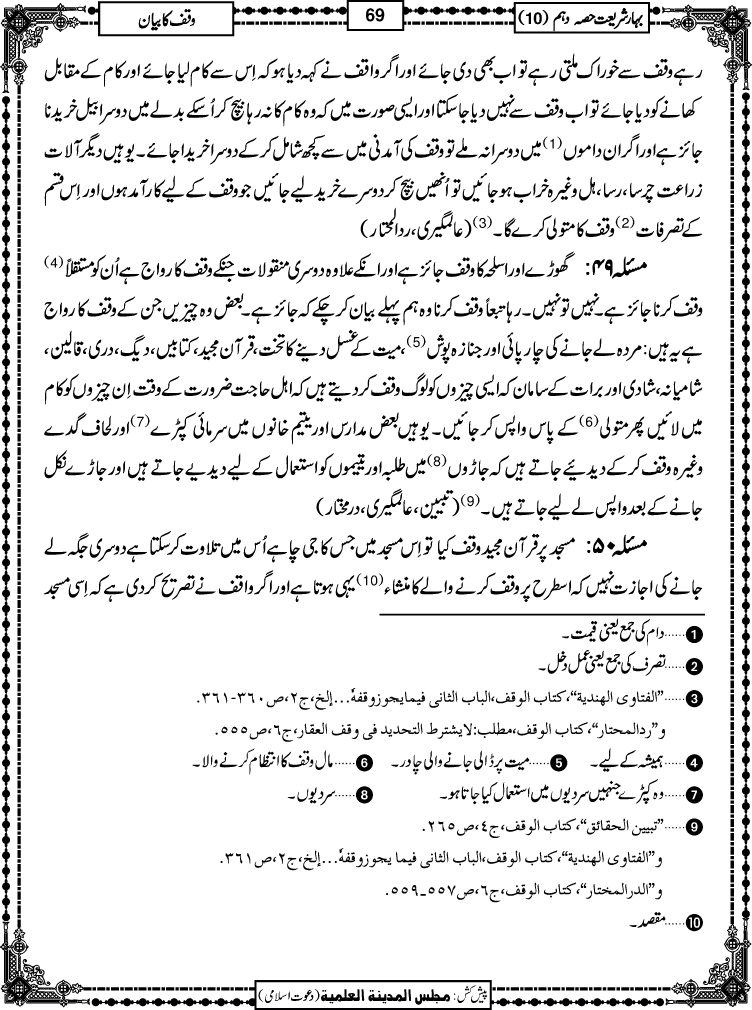 بہارِ شریعت حصہ دہم (10)
69
وقف کا بیان
رہے وقف سے خوراک ملتی رہے تو اب بھی دی جائے اور اگر واقف نے کہہ دیا ہو کہ اِس سے کام لیا جائے اور کام کے مقابل
کھانے کو دیا جائے تو اب وقف سے نہیں دیا جاسکتا اور ایسی صورت میں کہ وہ کام کا نہ رہا بیچ کر اُسکے بدلے میں دوسرا بیل خریدنا
جائز ہے اور اگر ان داموں(1) میں دوسرا نہ ملے تو وقف کی آمدنی میں سے کچھ شامل کر کے دوسرا خریدا جائے۔ یوہیں دیگر آلات
زراعت چرسا، رسا، ہل وغیرہ خراب ہو جائیں تو اُنھیں بیچ کر دوسرے خرید لیے جائیں جو وقف کے لیے کار آمد ہوں اور اِس قسم
کے تصرفات(2) وقف کا متولی کرے گا۔(3) (عالمگیری، ردالمحتار)
مسئلہ ۴۹: گھوڑے اور اسلحہ کا وقف جائز ہے اور انکے علاوہ دوسری منقولات جنکے وقف کا رواج ہے اُن کو مستقلاً(4)
وقف کرنا جائز ہے۔ نہیں تو نہیں۔ رہا تبعاً وقف کرنا وہ ہم پہلے بیان کر چکے کہ جائز ہے۔ بعض وہ چیزیں جن کے وقف کا رواج
ہے یہ ہیں: مردہ لے جانے کی چارپائی اور جنازہ پوش(5)، میت کے غسل دینے کا تخت، قرآن مجید، کتابیں، دیگ، دری، قالین،
شامیانہ، شادی اور برات کے سامان کہ ایسی چیزوں کو لوگ وقف کر دیتے ہیں کہ اہل حاجت ضرورت کے وقت اِن چیزوں کو کام
میں لائیں پھر متولی(6) کے پاس واپس کر جائیں۔ یوہیں بعض مدارس اور یتیم خانوں میں سرمائی کپڑے(7) اور لحاف گدے
وغیرہ وقف کر کے دیدئیے جاتے ہیں کہ جاڑوں(8) میں طلبہ اور یتیموں کو استعمال کے لیے دیدیے جاتے ہیں اور جاڑے نکل
جانے کے بعد واپس لے لیے جاتے ہیں۔(9) (تبیین، عالمگیری، درمختار)
مسئلہ ۵۰: مسجد پر قرآن مجید وقف کیا تو اِس مسجد میں جس کا جی چاہے اُس میں تلاوت کر سکتا ہے دوسری جگہ لے
جانے کی اجازت نہیں کہ اسطرح پر وقف کرنے والے کا منشاء(10) یہی ہوتا ہے اور اگر واقف نے تصریح کر دی ہے کہ اِسی مسجد
1 ......دام کی جمع یعنی قیمت۔
2 ......تصرف کی جمع یعنی عمل دخل۔
3 ......"الفتاوی الهندية"، کتاب الوقف، الباب الثانی فیما یجوز وقفہٗ...إلخ، ج٢، ص٣٦٠-٣٦١.
و"ردالمحتار"، کتاب الوقف، مطلب: لایشترط التحدید فی وقف العقار، ج٦، ص٥٥٥.
4 ......ہمیشہ کے لیے۔ 5 ......میت پر ڈالی جانے والی چادر۔ 6 ......مال وقف کا انتظام کرنے والا۔
7 ......وہ کپڑے جنہیں سردیوں میں استعمال کیا جاتا ہو۔ 8 ......سردیوں۔
9 ......"تبیین الحقائق"، کتاب الوقف، ج٤، ص٢٦٥.
و"الفتاوی الهندية"، کتاب الوقف، الباب الثانی فیما یجوز وقفہٗ...إلخ، ج٢، ص٣٦١.
و"الدرالمختار"، کتاب الوقف، ج٦، ص٥٥٧ـ٥٥٩.
10 ......مقصد۔
پیش کش: مجلس المدینة العلمیة (دعوت اسلامی)